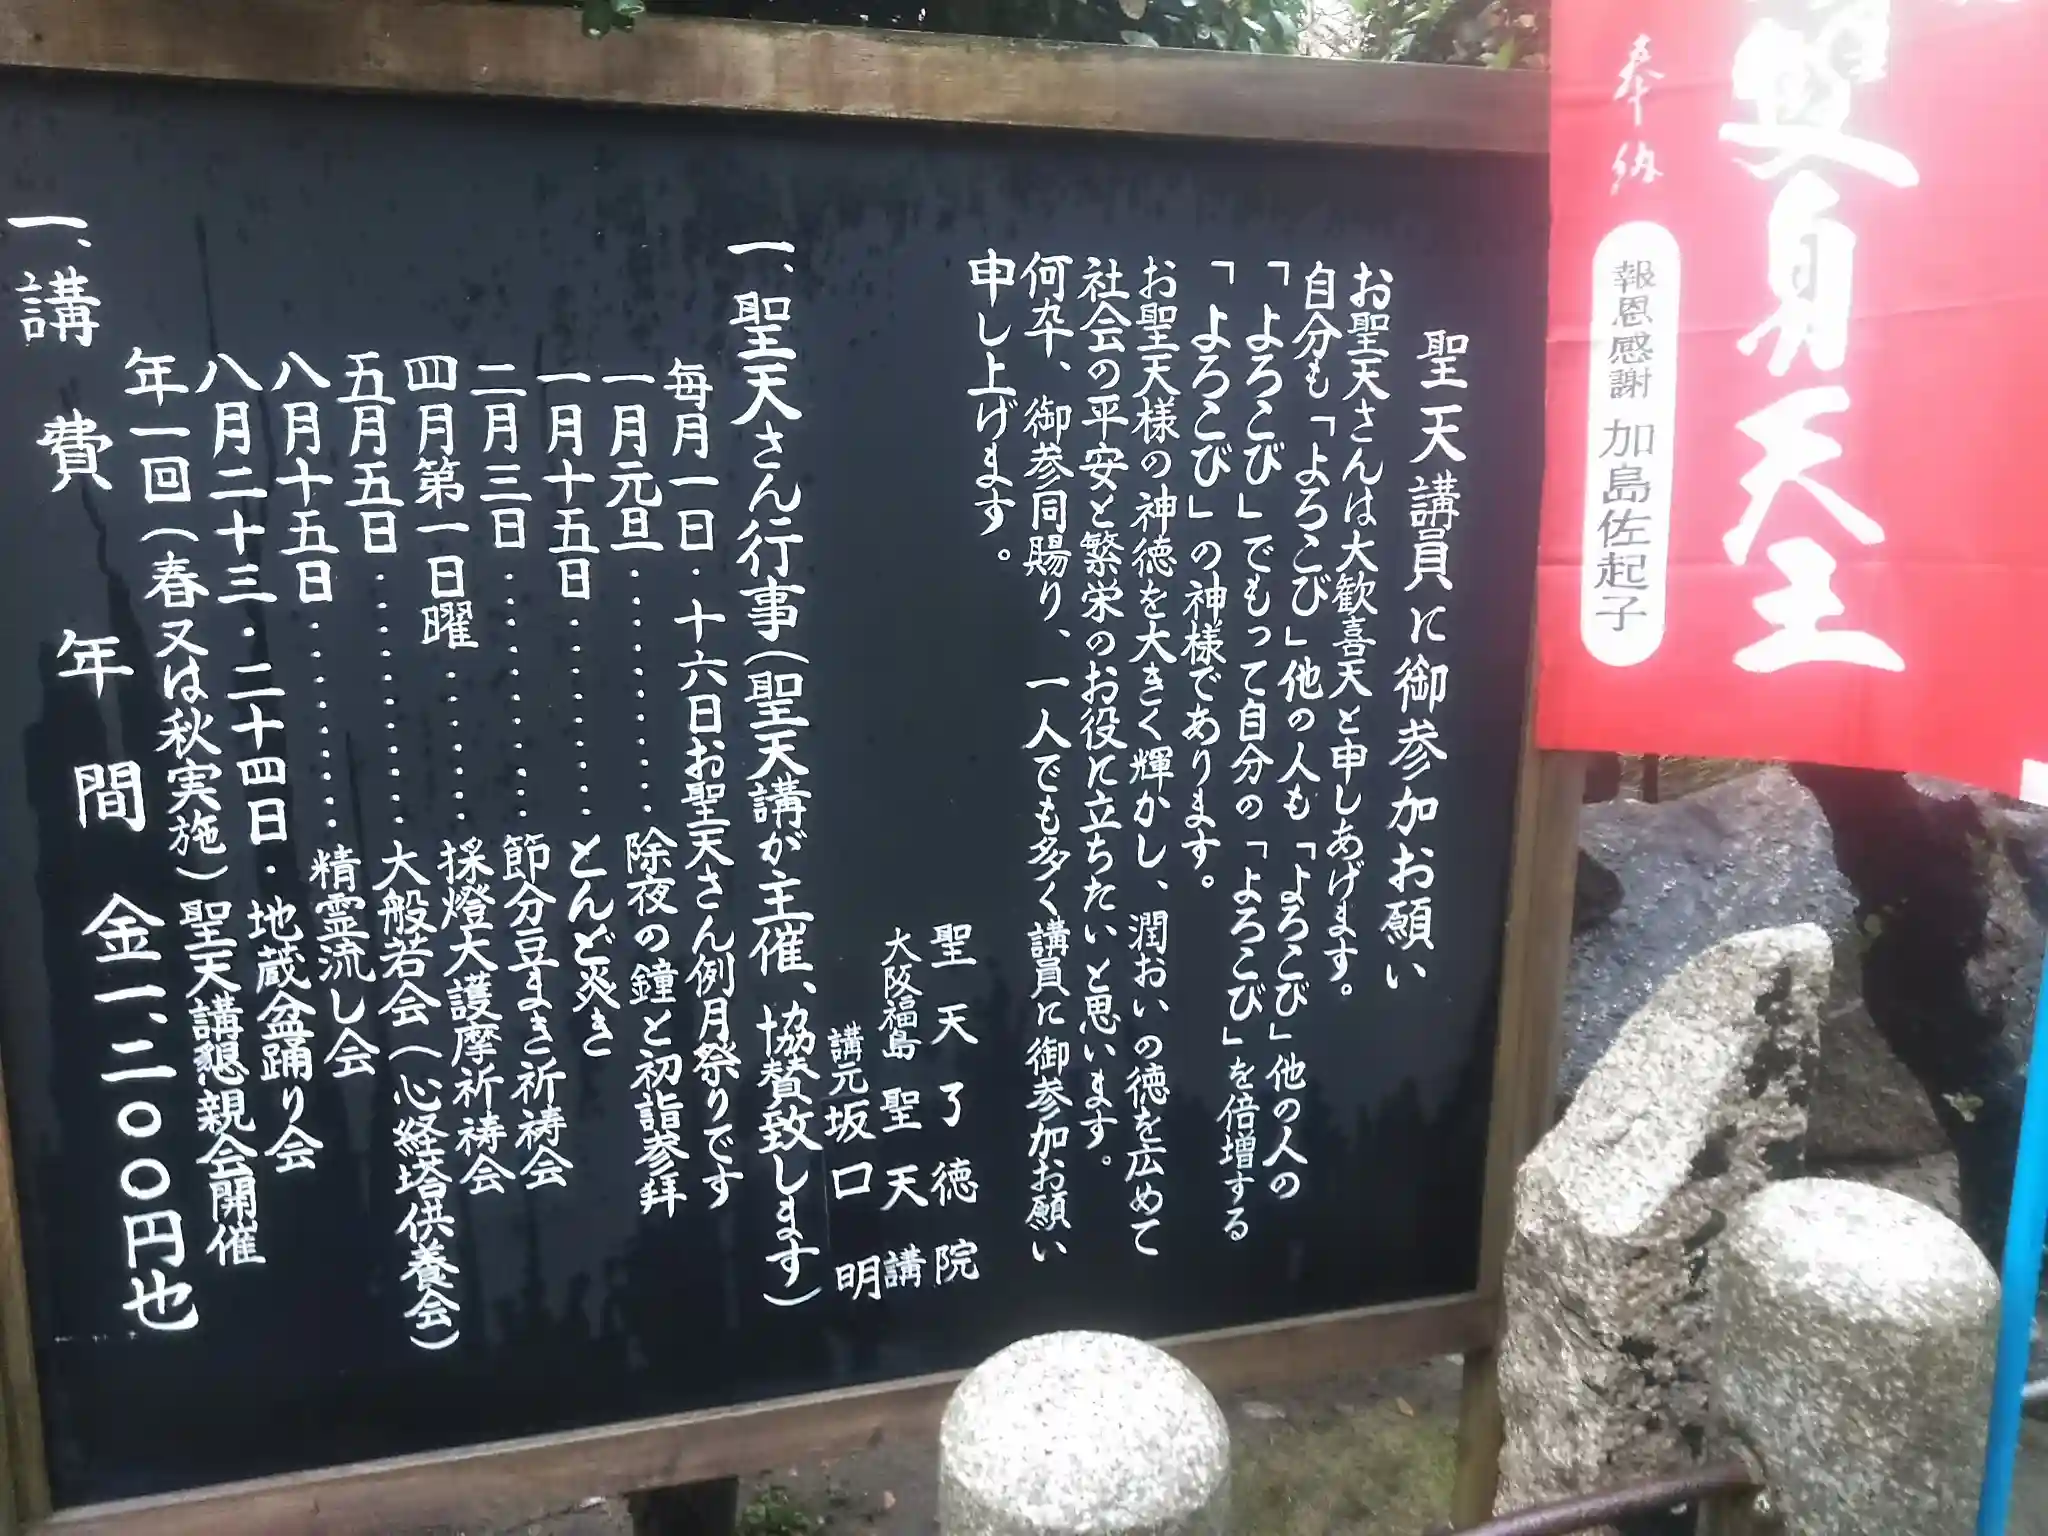 奉納
報恩感謝 加島佐起子
天王
聖天講員に御参加お願い
お聖天さんは大歓喜天と申しあげます。
自分も「よろこび」他の人も「よろこび」他の人の
「よろこび」でもって自分の「よろこび」を倍増する
「よろこび」の神様であります。
お聖天様の神徳を大きく輝かし、潤おいの徳を広めて
社会の平安と繁栄のお役に立ちたいと思います。
何卆、御参同賜り、一人でも多く講員に御参加お願い
申し上げます。
聖天了徳院
大阪福島 聖天講
講元 坂口明
一、聖天さん行事(聖天講が主催、協賛致します)
毎月一日・十六日お聖天さん例月祭りです
一月元旦……………除夜の鐘と初詣参拝
一月十五日…………とんど炎き
二月三日……………節分豆まき祈祷会
四月第一日曜………採燈大護摩祈祷会
五月五日……………大般若会(心経塔供養会)
八月十五日…………精霊流し会
八月二十三・二十四日・地蔵盆踊り会
年一回(春又は秋実施)聖天講懇親会開催
一、講費 年間 金一、二〇〇円也